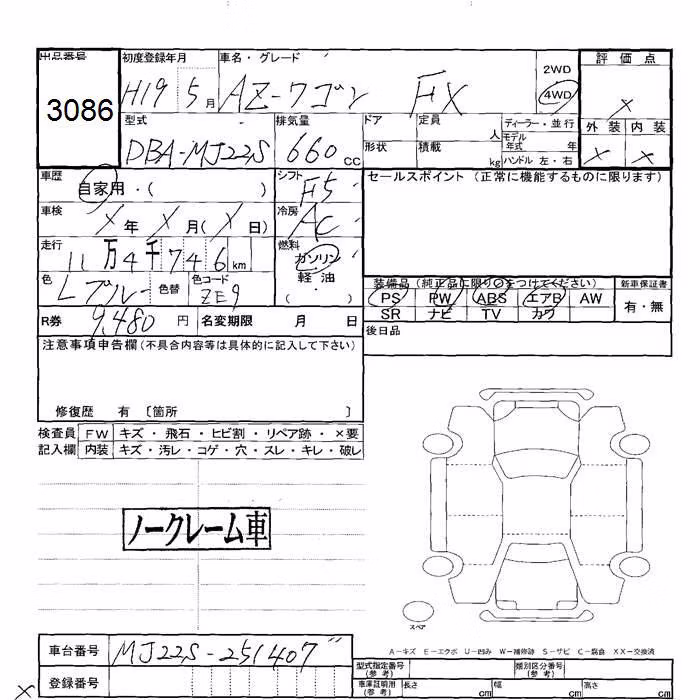 出品番号 初度登録年月 車名・グレード 評価点
3086 H19 5月 AZ-ワゴン FX 2WD 4WD ×
型式 排気量 ドア 定員 人 ディーラー・並行 外装 内装
DBA-MJ22S 660cc 形状 積載 kg モデル年式 年 ハンドル 左・右 × ×
車歴 自家用・( ) シフト F5 セールスポイント (正常に機能するものに限ります)
車検 ×年 ×月(×日) 冷房 AC
走行 11万4千746km 燃料 ガソリン・軽・油 ( )
色 Lブルー 色替 色コード ZE9 装備品 (純正品に限り○をつけてください) 新車保証書
PS PW ABS エアB AW 有・無
R券 9,480円 名変期限 月 日 SR ナビ TV カワ
後日品
注意事項申告欄(不具合内容等は具体的に記入して下さい)
修復歴 有 〔箇所 〕
検査員 FW キズ・飛石・ヒビ割・リペア跡・×要
記入欄 内装 キズ・汚レ・コゲ・穴・スレ・キレ・破レ
ノークレーム車
スペア
A-キズ E-エクボ U-凹み W-補修跡 S-サビ C-腐食 XX-交換済
車台番号 MJ22S-251407
型式指定番号(参考) 類別区分番号(参考)
登録番号 車庫証明用(参考) 長さ cm 幅 cm 高さ cm
×